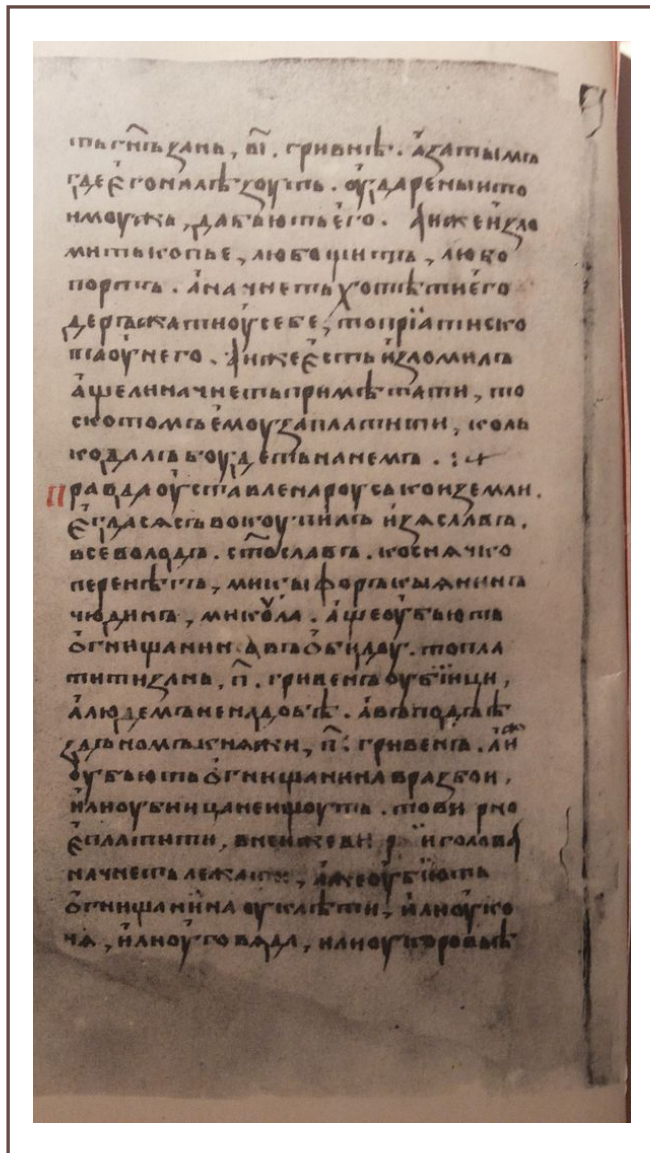 ть гн҃ъ за нь, в҃і. гривнѣ. а за тымъ
где его налѣзоуть. оударены и то
и моужь, да бьють его. А иже изло
мить копье, любо щитъ, любо
портъ. а начнеть хотѣти его
деръжати оу себе, то пріати ско
та оу него. А иже есть изломилъ
аще ли начнеть примѣтати, то
скотомъ емоу заплатити, коль
ко далъ боудеть на немъ.
Правда оуставлена роуськои земли.
егда ся съвокоупилъ изяславъ.
всеволодъ. ст҃ославъ. коснячко
перенѣгъ, микыфоръ кыянинъ
чюдинъ, микоула. аще оубьють
огнищанина въ обидоу. то пла
тити за нь, п҃. гривенъ оубіици,
а людемъ не надобѣ. а въ подъѣ
здьномъ княжи, п҃. гривенъ. а иж
оубьють огнищанина в разбои,
или оубиица не ищоуть. то вирно
е платити, в неи же ви р и голова
начнеть лежати, аже оубіють
огнищанина оу клѣти, или оу ко
ня, или оу говяда, или оу коровьѣ